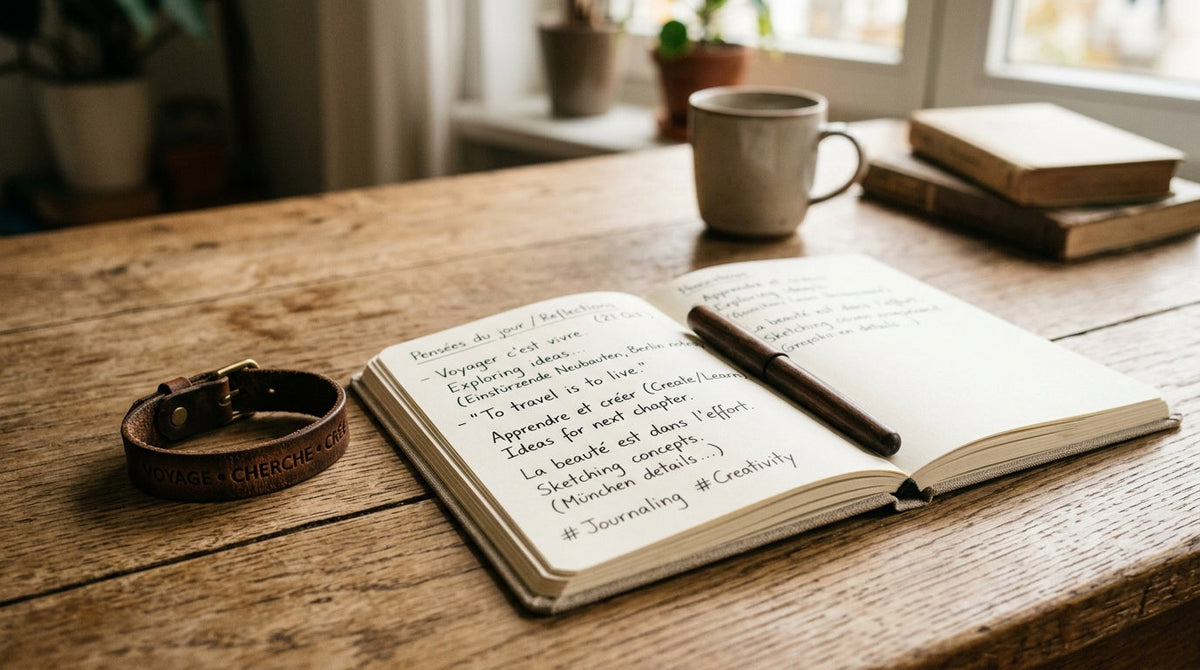 Pensées du jour / Reflections
(21 Oct)
- Voyager c'est vivre.
Exploring ideas...
(Einstürzende Neubauten, Berlin notes
- "To travel is to live."
Apprendre et créer (Create/Learn)
Ideas for next chapter.
La beauté est dans l'effort.
Sketching concepts.
(München details...)
# Journaling # Creativity
Apprendre et
Exploring
La beauté est dans l'effort
Sketching
en details
VOYAGE • CHERCHE • CRÉE